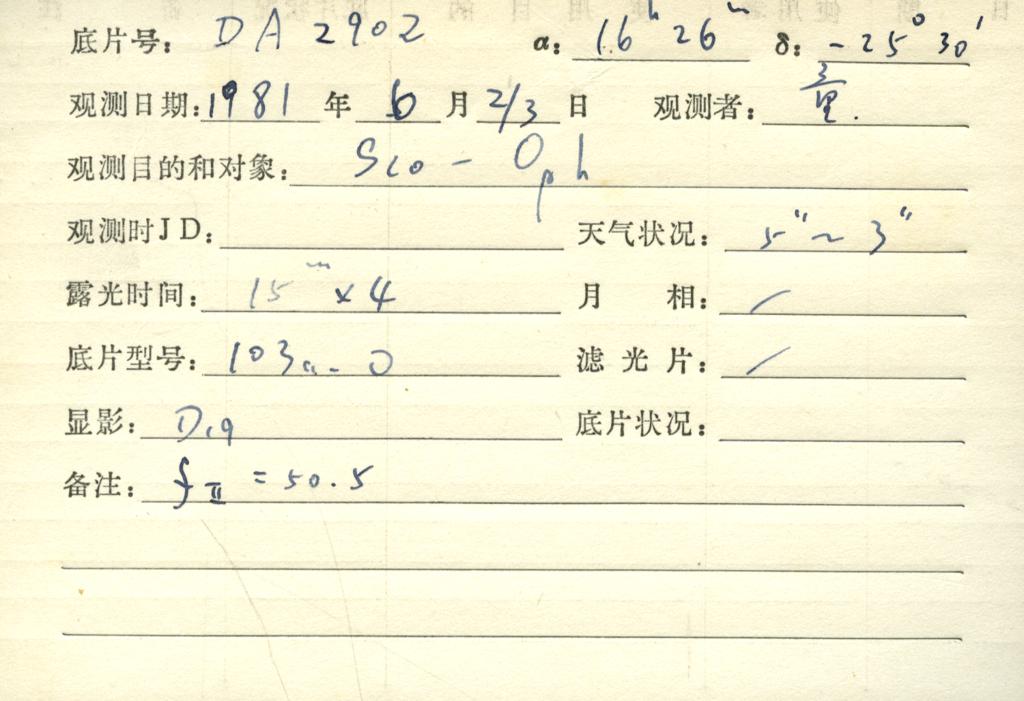 底片号: DA 2902 α: 16h 26m δ: -25° 30′
观测日期: 1981 年 6 月 2/3 日 观测者:
观测目的和对象: Sco - Oph
观测时JD: 天气状况: 5" ~ 3"
露光时间: 15m × 4 月 相: /
底片型号: 103a-O 滤光片: /
显影: D19 底片状况:
备注: fII = 50.5